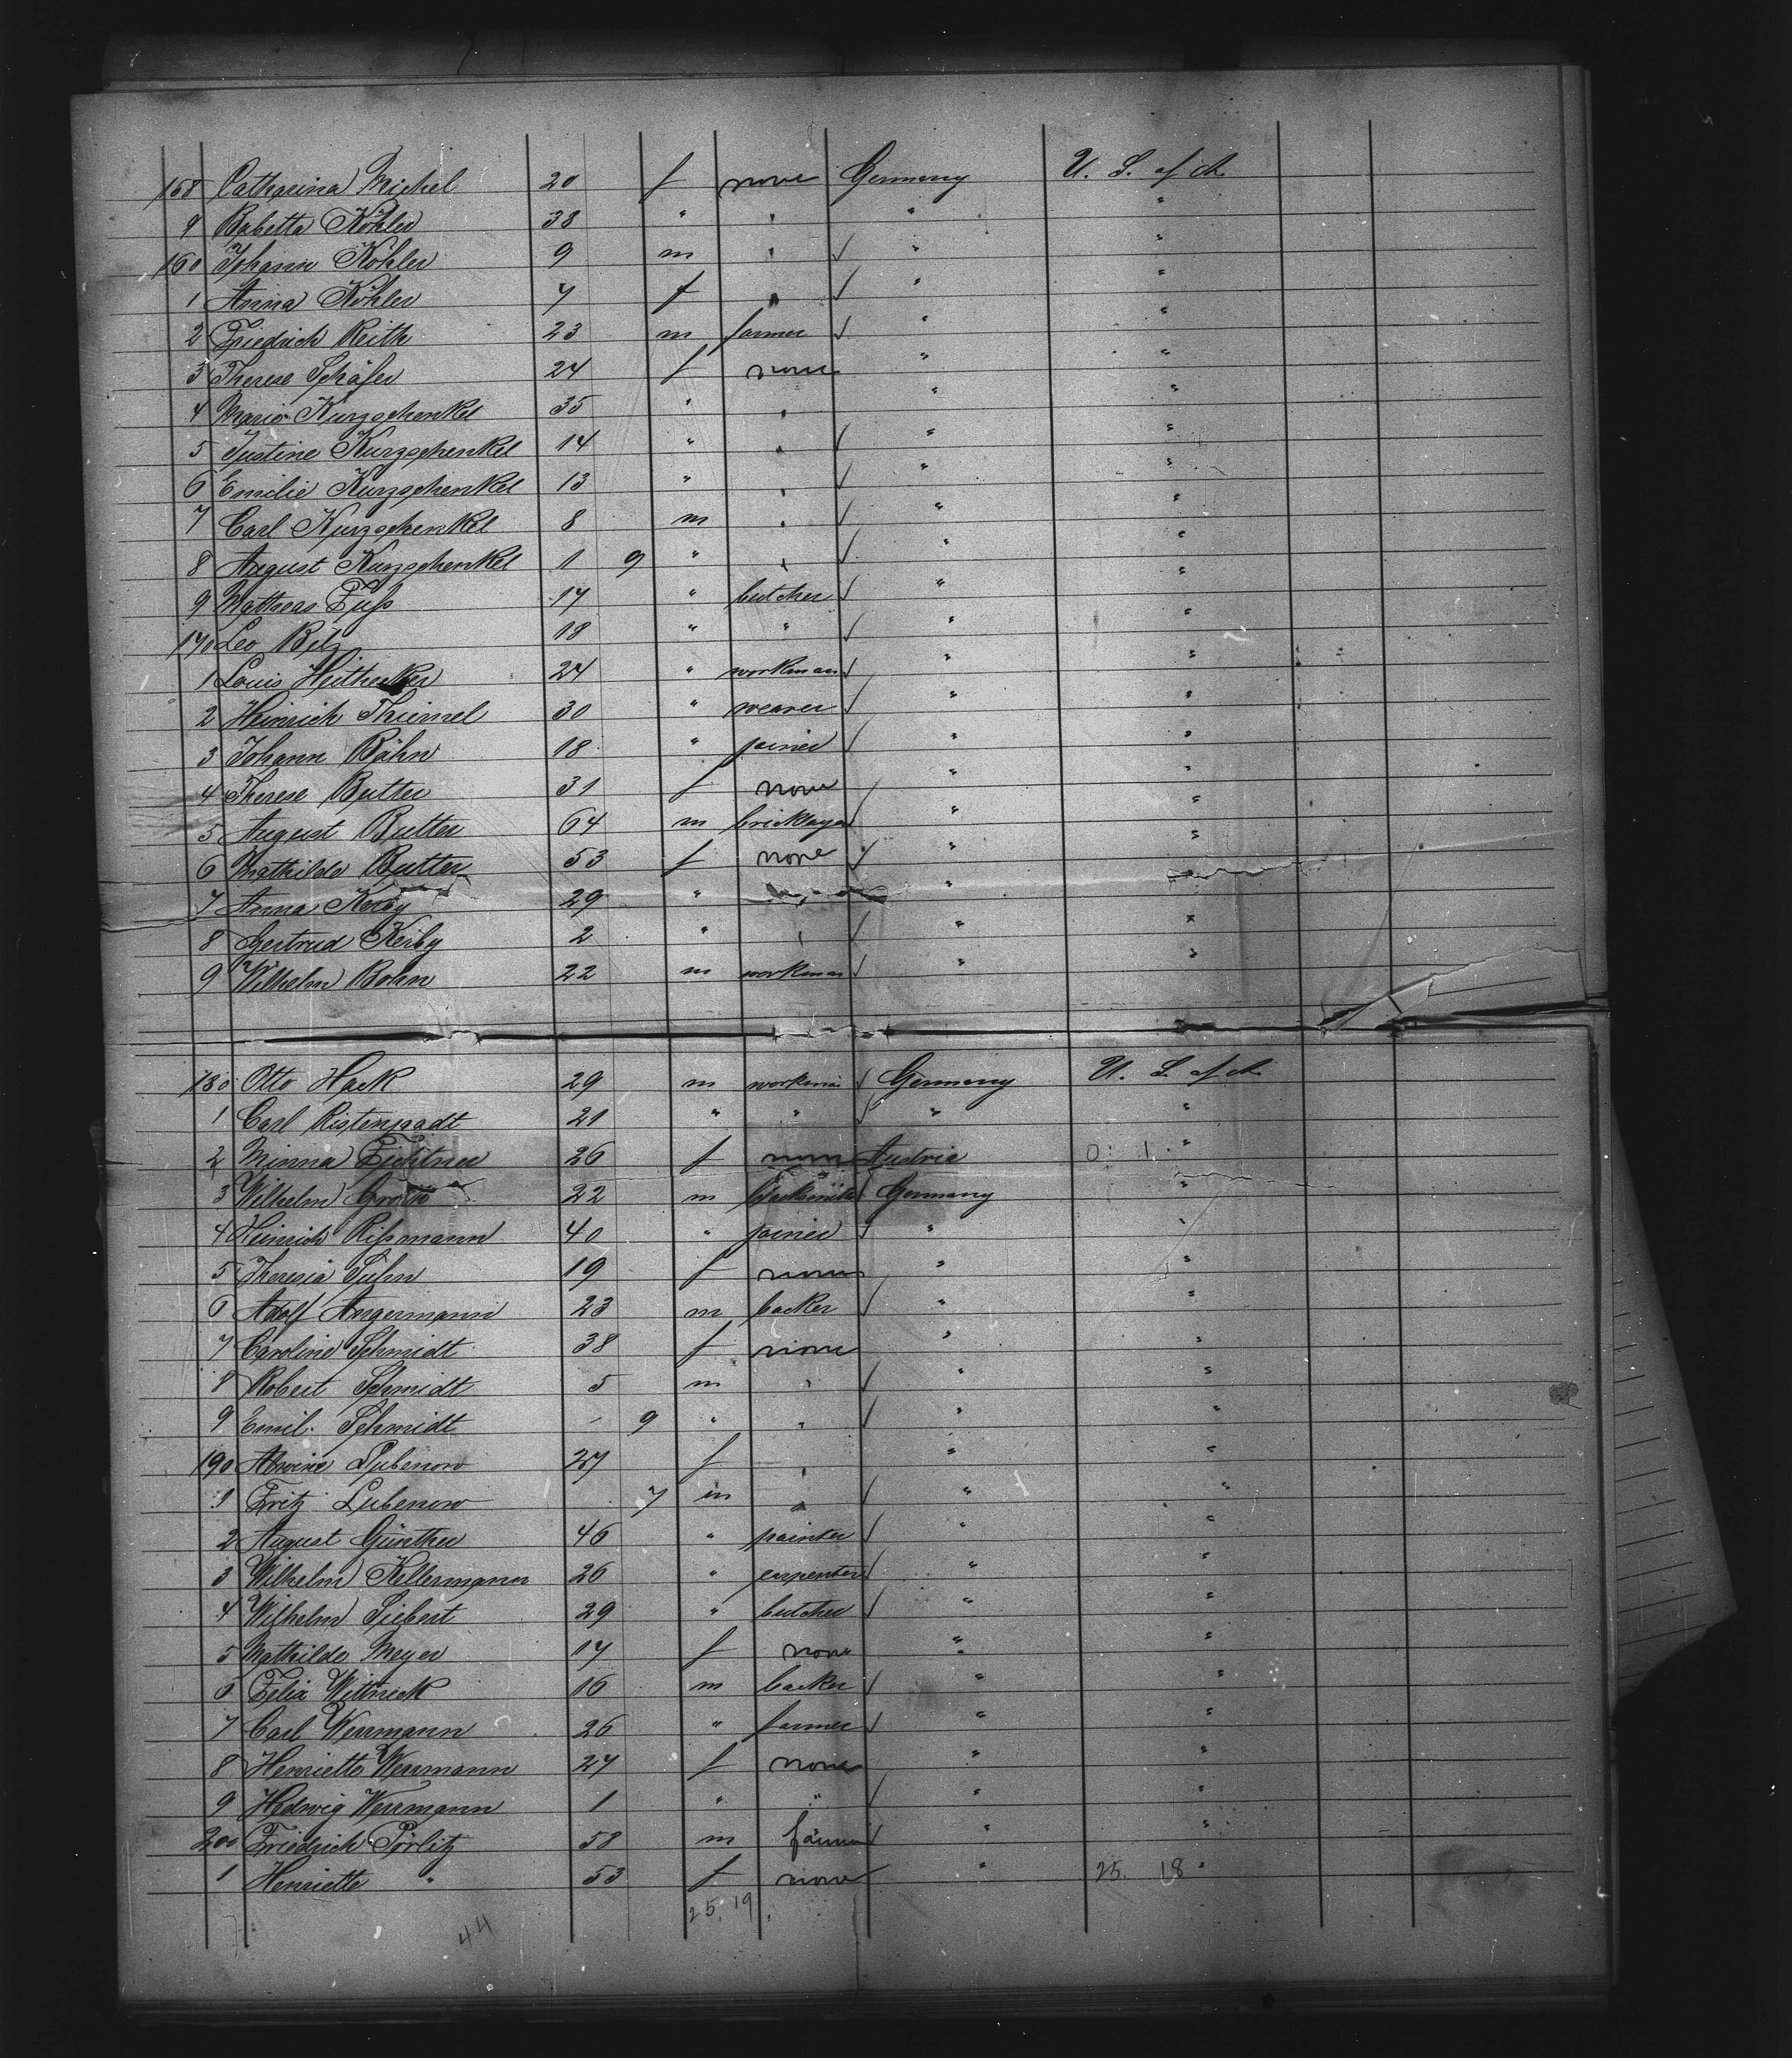 158 Catharina Michel 20 f none Germany U. S. of A.
9 Babetta Köhler 38 " " " "
160 Johann Köhler 9 m " √ " "
1 Anna Köhler 7 f " √ " "
2 Friedrich Reith 23 m farmer √ " "
3 Therese Schäfer 24 f none " "
4 Marie Kurzschenkel 35 " " " "
5 Justine Kurzschenkel 14 " " √ " "
6 Emilie Kurzschenkel 13 " " √ " "
7 Carl Kurzschenkel 8 m " √ " "
8 August Kurzschenkel 1 9 " " √ " "
9 Mathias Fuß 17 " butcher √ " "
170 Leo Betz 18 " " √ " "
1 Louis 24 " workman √ " "
2 Heinrich Thiemel 30 " weaver √ " "
3 Johann Bähn 18 " joiner √ " "
4 Therese Butter 31 f none √ " "
5 August Butter 64 m bricklayer √ " "
6 Mathilde Butter 53 f none √ " "
7 Anna 29 " " "
8 Gertrud Kerby 2 " " √ " "
9 Wilhelm Bohn 22 m workman √ " "
180 Otto Hack 29 m workman √ Germany U. S. of A.
1 Carl Ristenpadt 21 " " √ " "
2 Minna Fichtner 26 f none Austria 0. 1. "
3 Wilhelm 22 m blacksmith √ Germany "
4 Heinrich Rißmann 40 " joiner √ " "
5 Theresia Suhm 19 f none " "
6 Adolf Angermann 23 m backer √ " "
7 Caroline Schmidt 38 f none " "
8 Robert Schmidt 5 m " √ " "
9 Emil Schmidt - 9 " " √ " "
190 Alwine Lubenow 27 f " " "
1 Fritz Lubenow 7 m " √ " "
2 August Günther 46 " painter √ " "
3 Wilhelm Kellermann 26 " carpenter √ " "
4 Wilhelm Siebert 29 " butcher √ " "
5 Mathilde Meyer 17 f none " "
6 Felix Wittneck 16 m backer √ " "
7 Carl Wermann 26 " farmer √ " "
8 Henriette Wermann 27 f none " "
9 Hedwig Wermann 1 " " √ " "
200 Friedrich Pörlitz 58 m farmer √ " "
1 Henriette " 53 f none " 25. 18 "
44 25, 19.